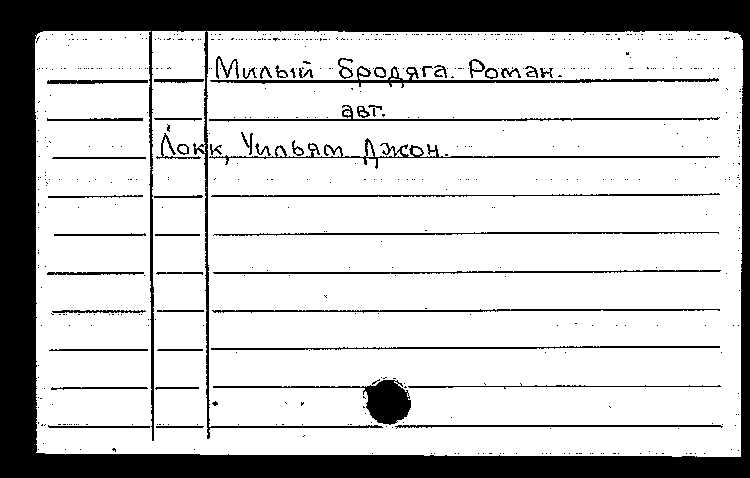 Милый бродяга. Роман.
авт.
Локк, Уильям Джон.